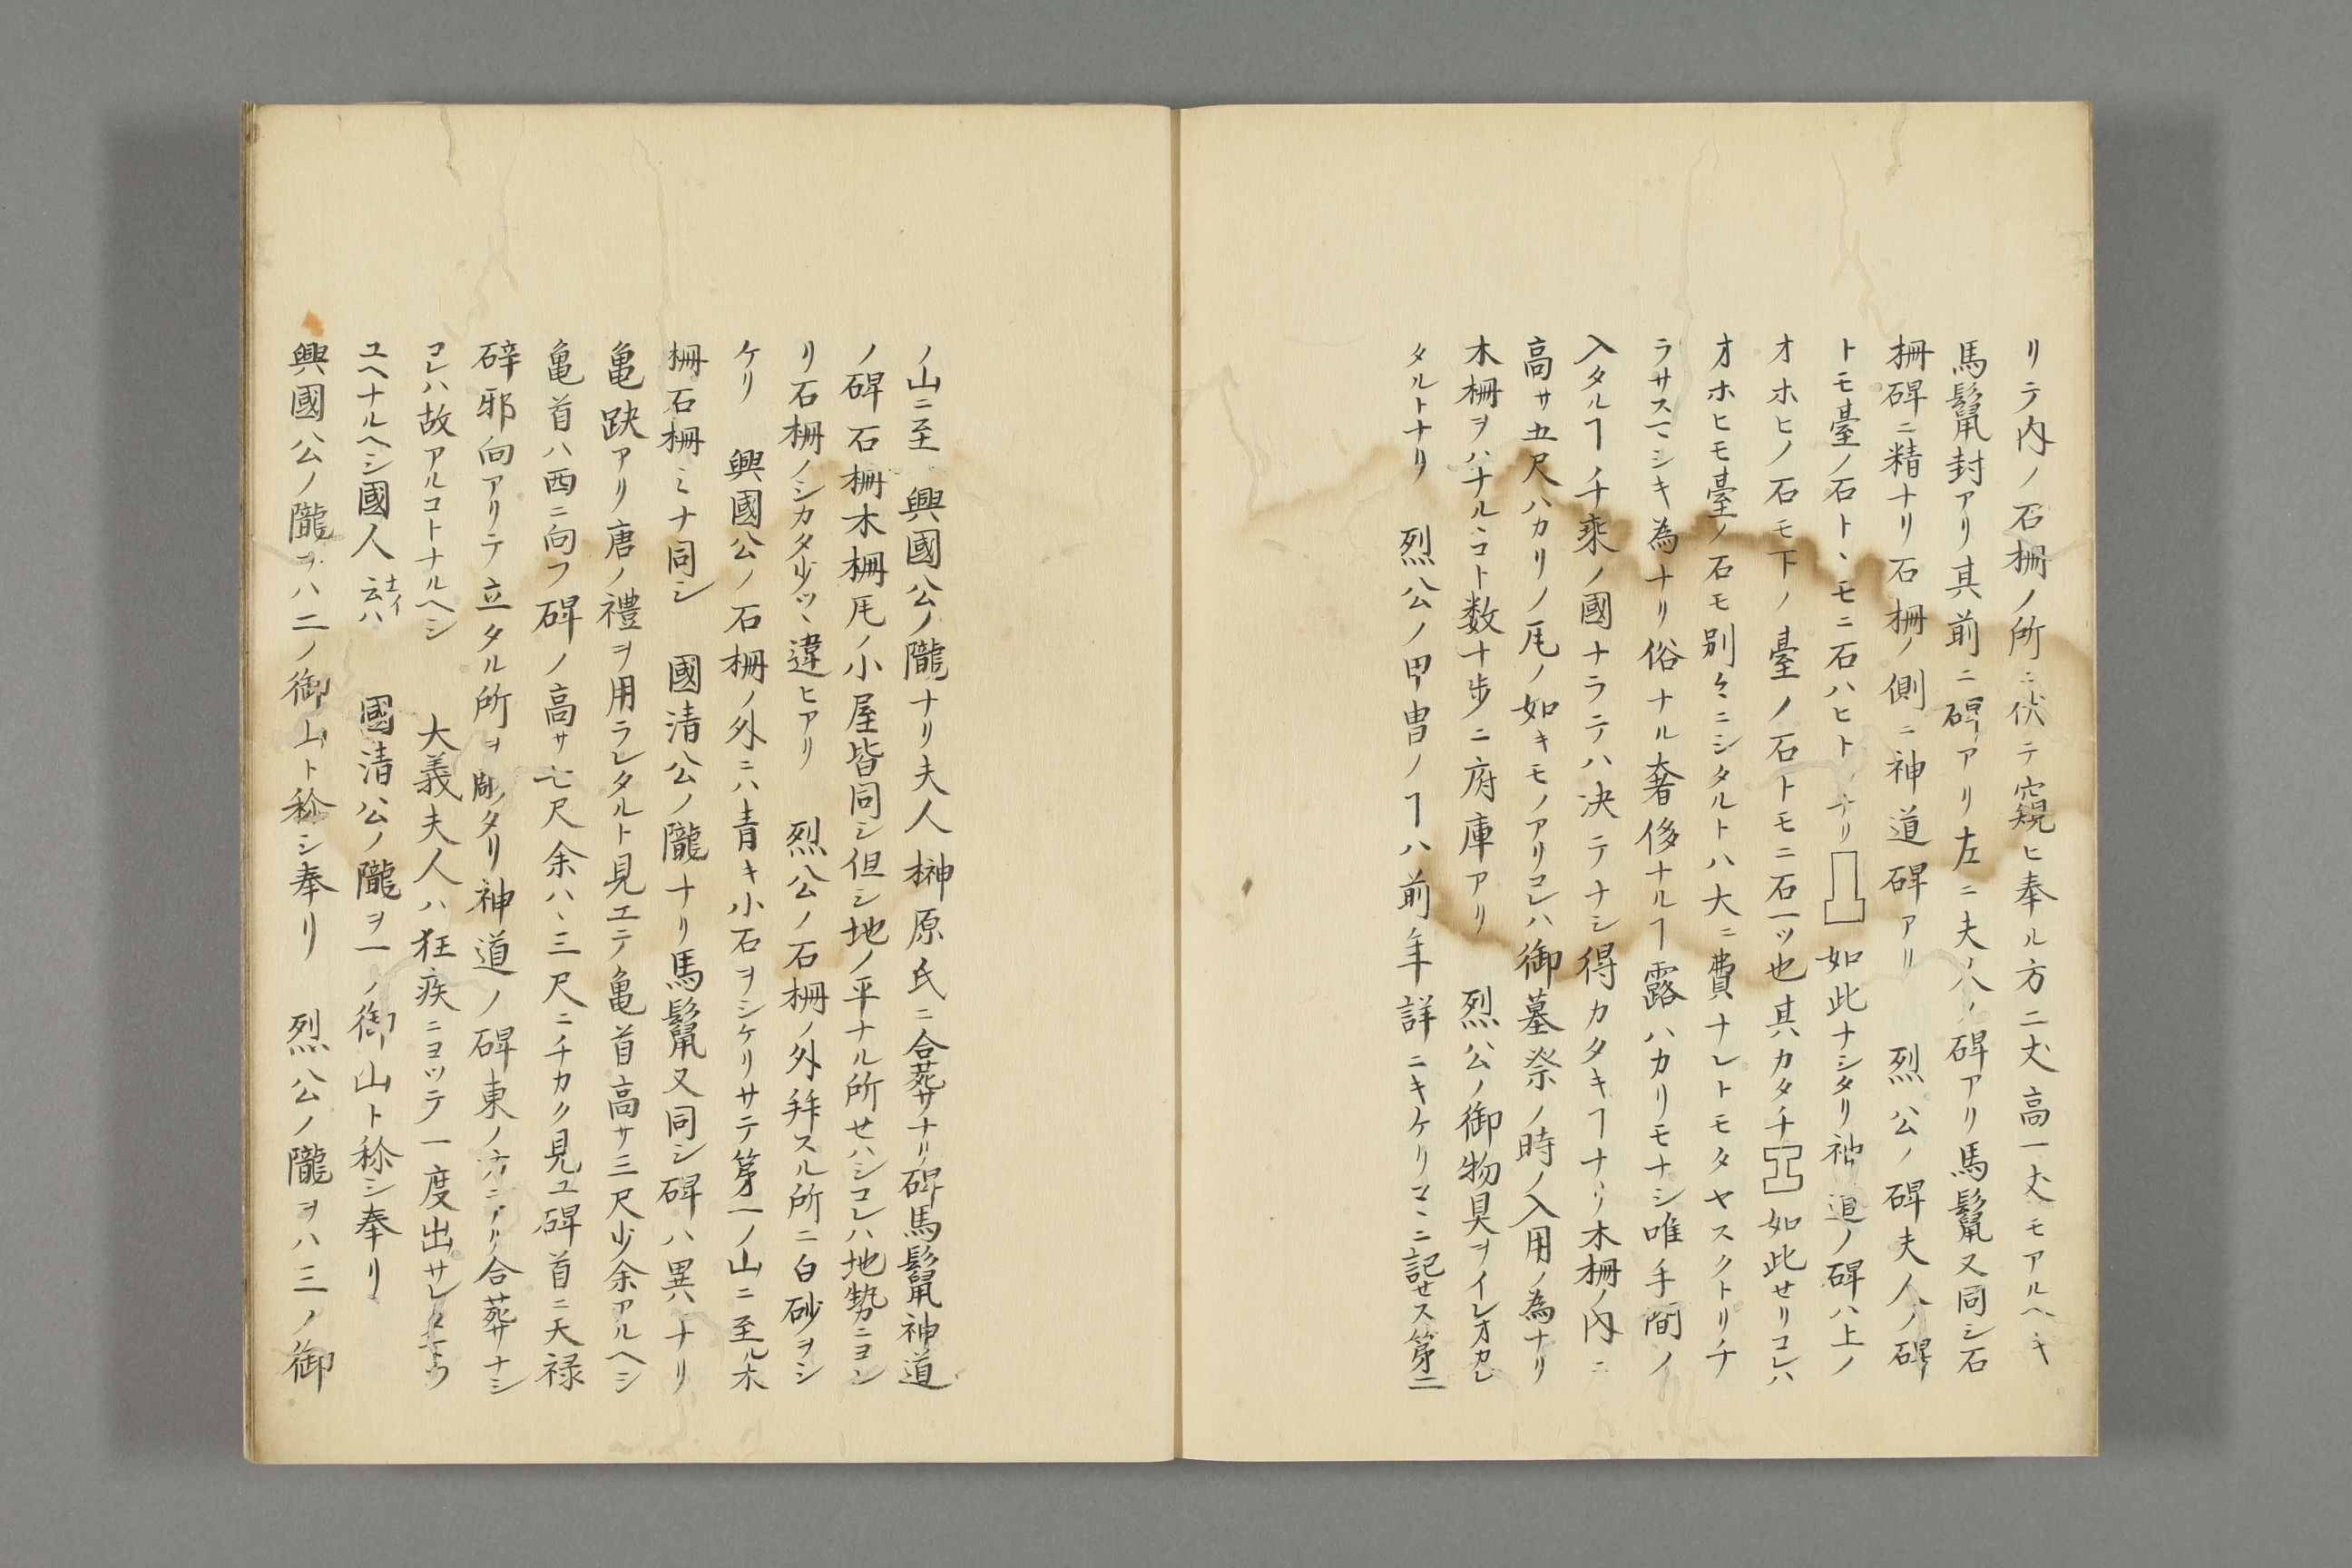 リテ内ノ石柵ノ所ニ伏テ窺ヒ奉ル方二丈高一丈モアルヘキ
馬鬛封アリ其前ニ碑アリ左ニ夫人ノ碑アリ馬鬛又同シ石
柵碑ニ精ナリ石柵ノ側ニ神道碑アリ 烈公ノ碑夫人ノ碑
トモ臺ノ石トヽモニ石ハヒトツナリ 如此ナシタリ神道ノ碑ハ上ノ
オホヒノ石モ下ノ臺ノ石トモニ石一ツ也其カタチ 如此せリコレハ
オホヒモ臺ノ石モ別々ニシタルトハ大ニ費ナレトモタヤスクトリチ
ラサスマシキ為ナリ俗ナル奢侈ナルヿ露ハカリモナシ唯手間ノ
入タルヿ千乘ノ國ナラテハ决テナシ得カタキヿナリ木柵ノ内ニ
高サ五尺ハカリノ凥ノ如キモノアリコレハ御墓祭ノ時ノ入用ノ為ナリ
木柵ヲハナルヽコト数十步ニ府庫アリ 烈公ノ御物具ヲイレオカレ
タルトナリ 烈公ノ甲冑ノヿハ前年詳ニキケリコヽニ記せス第二
ノ山ニ至 興國公ノ隴ナリ夫人榊原氏ニ合葬サナリ碑馬鬛神道
ノ碑石柵木柵凥ノ小屋皆同シ但シ地ノ平ナル所せハシコレハ地勢ニヨレ
リ石柵ノシカタ少ツヽ違ヒアリ 烈公ノ石柵ノ外拜スル所ニ白砂ヲシ
ケリ 興國公ノ石柵ノ外ニハ青キ小石ヲシケリサテ第一ノ山ニ至ル木
柵石柵ミナ同シ 國清公ノ隴ナリ馬鬛又同シ碑ハ異ハナリ
亀趺アリ唐ノ禮ヲ用ラレタルト見エテ亀首高サ三尺少余アルヘシ
亀首ハ西ニ向フ碑ノ高サ七尺余ハヽ三尺ニチカク見ユ碑首ニ天禄
碎邪向アリテ立タル所ヲ彫タリ神道ノ碑東ノ方ニアリ合葬サナシ
コレハ故アルコトナルヘシ 大義夫人ハ狂疾ニヨッテ一度出サレタマウ
ユヘナルヘシ國人云ハ 國清公ノ隴ヲ一ノ御山ト称シ奉リ
興國公ノ隴ヲハ二ノ御山ト称シ奉リ 烈公ノ隴ヲハ三ノ御